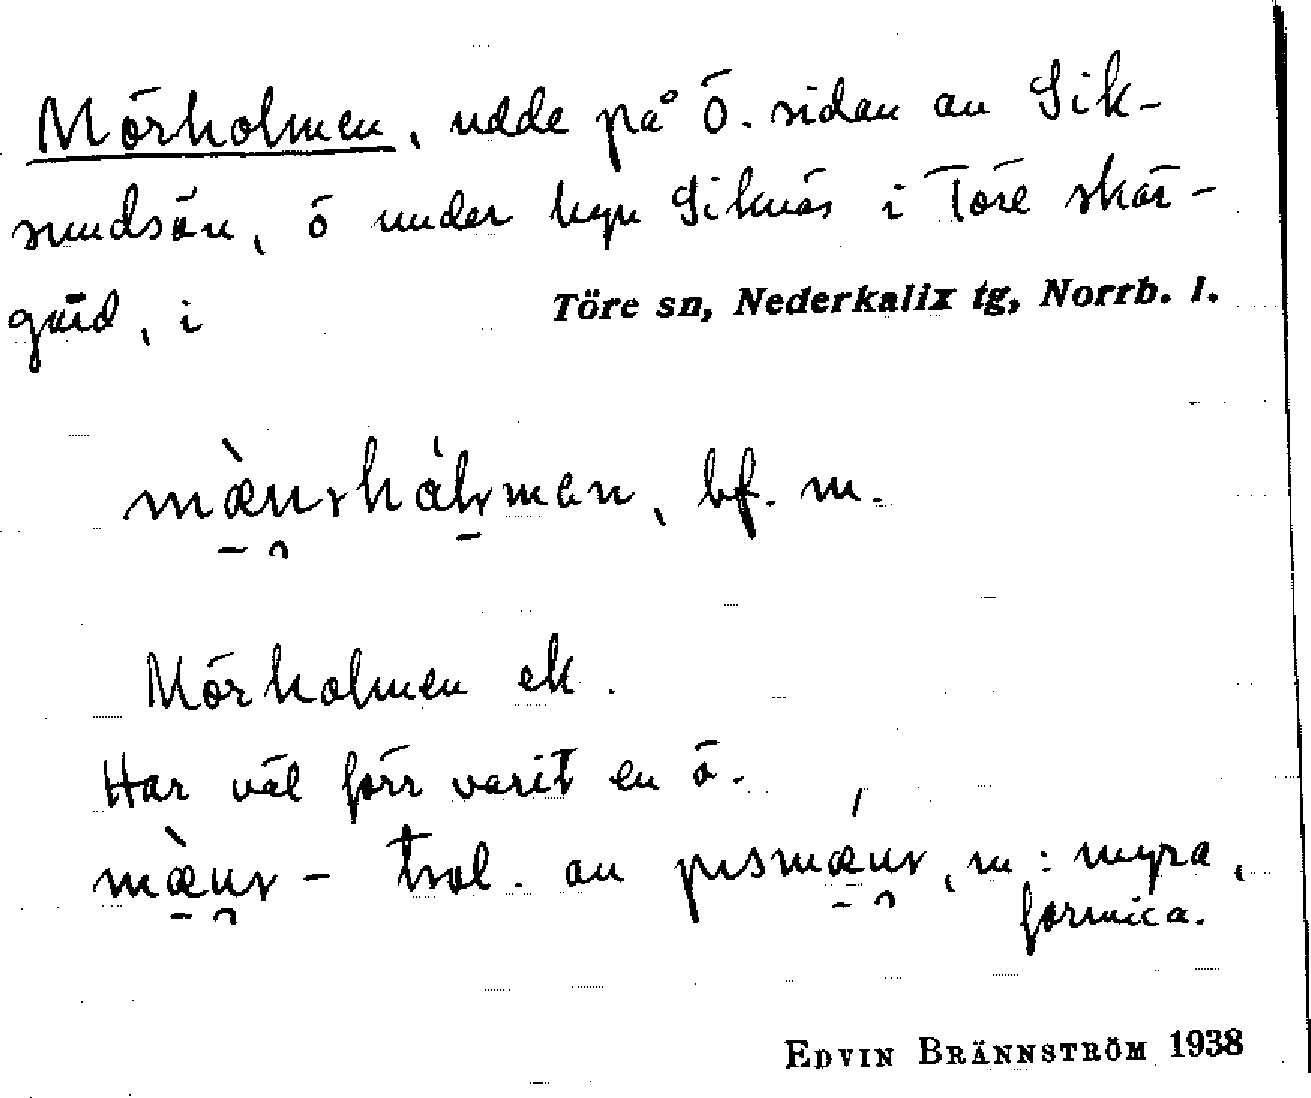 Mörholmen, udde på Ö. sidan av Sik-
sundsön, ö under byn Siknäs i Töre skär-
gård, i Töre sn, Nederkalix tg, Norrb. l.
bf. m.
Mörholmen ek.
Har väl förr varit en ö.
trol. av m: myra,
formica.
EDVIN BRÄNNSTRÖM 1938